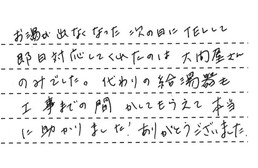 お湯が出なくなった次の日にTELして
即日対応してくれたのは大関屋さん
のみでした。代わりの給湯器も
工事までの間かしてもらえて本当
に助かりました!ありがとうございました